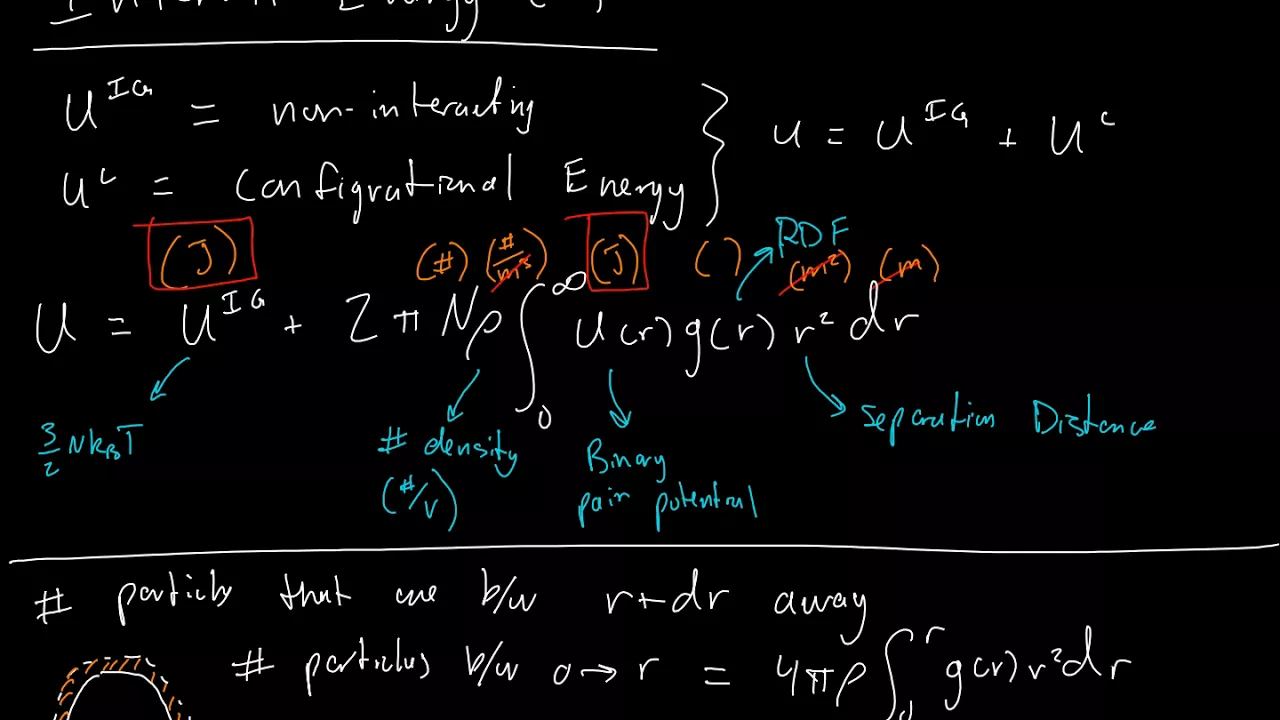 Internal Energy
U^IG = non-interacting
U = U^IG + U^c
U^c = Configrational Energy
RDF
(J) (#) (#/m³) (J) ( ) (m²) (m)
U = U^IG + 2πNρ ∫₀^∞ u(r) g(r) r² dr
3/2 Nk_BT
# density
(#/V)
Binary
pair potential
Separation Distance
# particles that are b/w r+dr away
# particles b/w 0→r = 4πρ ∫₀^r g(r) r² dr